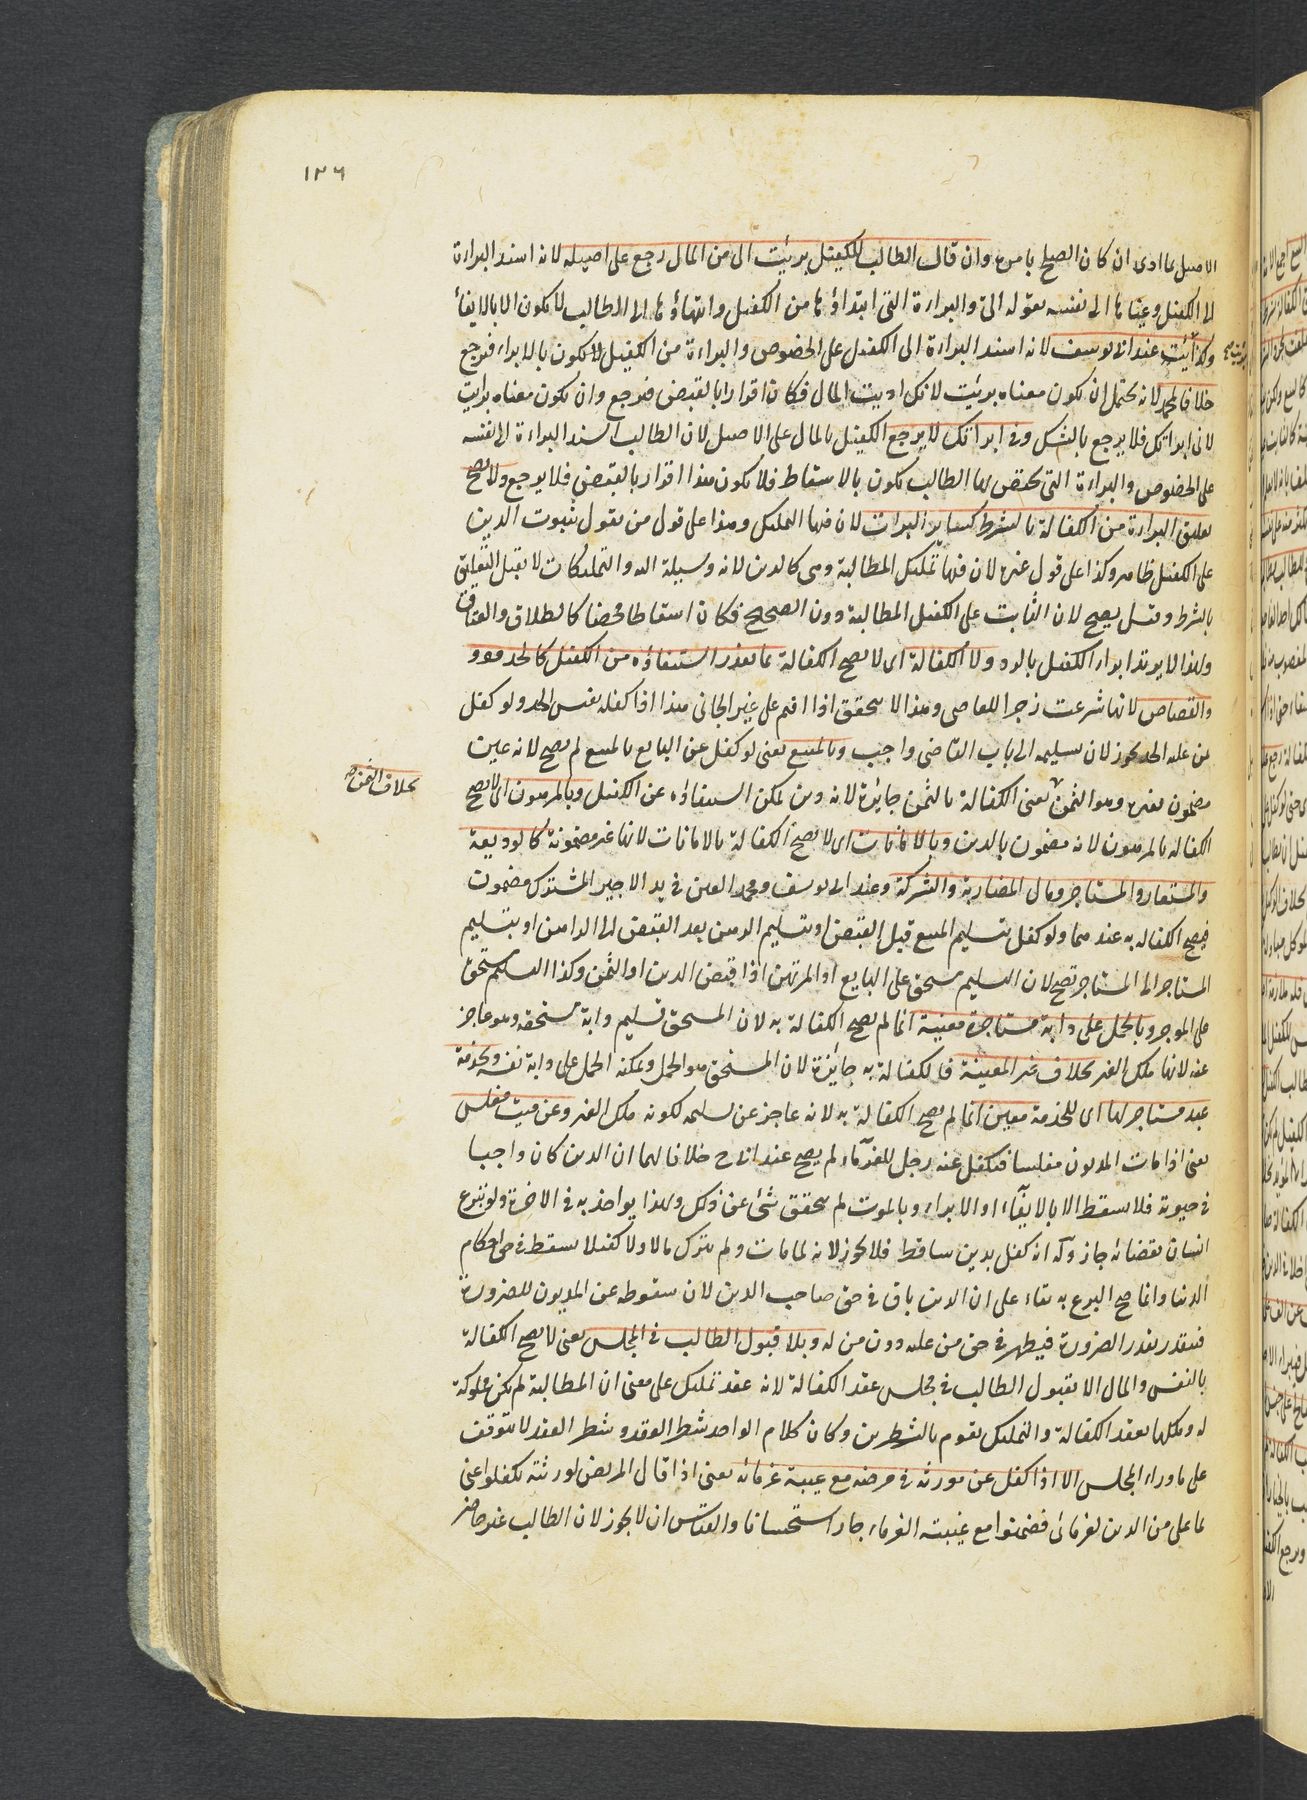 ١٢٦
الاصيل بما ادى ان كان الصلح بامره وان قال الطالب للكفيل برئت الى من المال رجع على اصيله لانه اسند البراءة
الى الكفيل وغيا بها الى نفسه بقوله الىّ والبراءة التى ابتداؤها من الكفيل وانتهاؤها الى الطالب لا تكون الا بالايفاء
وكذا برئت عند ابى يوسف لانه اسند البراءة الى الكفيل على الخصوص والبراءة من الكفيل لا تكون بالابراء فيرجع
خلافا لمحمد لانه يحتمل ان يكون معناه برئت لانك اديت المال فكان اقرارا بالقبض فيرجع وان يكون معناه برئت
لانى ابرأتك فلا يرجع بالشك وفى ابرأتك لا يرجع الكفيل بالمال على الاصيل لان الطالب اسند البراءة الى نفسه
على الخصوص والبراءة التى تختص بها الطالب تكون بالاسقاط فلا تكون هذا اقرار بالقبض فلا يرجع ولا يصح
تعليق البراءة من الكفالة بالشرط كسائر البراات لان فيها التمليك وهذا على قول من يقول بثبوت الدين
على الكفيل ظاهر وكذا على قول غيره لان فيها تمليك المطالبة وهى كالدين لانه وسيلة اليه والتمليكات لا يقبل التعليق
بالشرط وقيل يصح لان الثابت على الكفيل المطالبة دون الصحيح فكان اسقاطا محضا كالطلاق والعتاق
ولهذا لا يرتد ابراء الكفيل بالرد ولا الكفالة اى لا يصح الكفالة بما تعذر استيفاؤه من الكفيل كالحدود
والقصاص لانها شرعت زجرا للعاصى وهذا لا يتحقق اذا اقيم على غير الجانى هذا اذا كفل بنفس الحد ولو كفل
من عليه الحد يجوز لان تسليمه الى باب القاضى واجب وبالمبيع يعنى لو كفل عن البايع بالمبيع لم يصح لانه عين
مضمون بغيره وهو الثمن يعنى الكفالة بالثمن جايزة لانه دين يمكن استيفاؤه عن الكفيل وبالمرهون اى لا يصح
بخلاف الثمن صح
الكفالة بالمرهون لانه مضمون بالدين وبالامانات اى لا يصح الكفالة بالامانات لانها غير مضمونة كالوديعة
والمستعار والمستاجر ومال المضاربة والشركة وعند ابى يوسف ومحمد العين فى يد الاجير المشترك مضمون
فيصح الكفالة به عندهما ولو كفل بتسليم المبيع قبل القبض او بتسليم الرهن بعد القبض الى الراهن او بتسليم
المستاجر الى المستاجر تصح لان التسليم مستحق على البايع او المرتهن اذا قبض الدين او الثمن وكذا التسليم مستحق
على الموجر وبالحمل على دابة مستاجرة معينة انما لم يصح الكفالة به لان المستحق تسليم دابة مستحقة وهو عاجز
عنه لانها ملك الغير بخلاف غير المعينة فالكفالة به جايزة لان المستحق هو الحمل ويمكنه الحمل على دابة نفسه وبخدمة
عبد مستاجر لها اى للخدمة معين انما لم يصح الكفالة به لانه عاجز عن تسليمه لكونه ملك الغير وعن ميت مفلس
يعنى اذا مات المديون مفلسا فتكفل عنه رجل للغرماء لم يصح عند ابى ح خلافا لهما ان الدين كان واجبا
فى حيوته فلا يسقط الا بالايفاء او الابراء وبالموت لم يتحقق شئ عن ذلك ولهذا يواخذ به فى الاخرة ولو تبرع
انسان بقضائه جاز وله انه كفل بدين ساقط فلا يجوز لانه لما مات ولم يترك مالا ولا كفيلا سقط فى حق احكام
الدنيا وانما صح التبرع به بناء على ان الدين باق فى حق صاحب الدين لان سقوطه عن المديون للضرورة
فيتقدر بقدر الضرورة فيظهر فى حق من عليه دون من له وبلا قبول الطالب فى المجلس يعنى لا يصح الكفالة
بالنفس والمال الا بقبول الطالب فى مجلس عقد الكفالة لانه عقد تمليك على معنى ان المطالبة لم يكن مملوكة
له وملكها بعقد الكفالة والتمليك يقوم بالشطرين وكان كلام الواحد شطر العقد وشطر العقد لا يتوقف
على ما وراء المجلس الا اذا كفل عن مورثه فى مرضه مع غيبة غرمائه يعنى اذا قال المريض لورثته تكفلوا عنى
بما على من الدين لغرمائى فضمنوا مع غيبته الغرماء جاز استحسانا والقياس ان لا يجوز لان الطالب غير حاضر